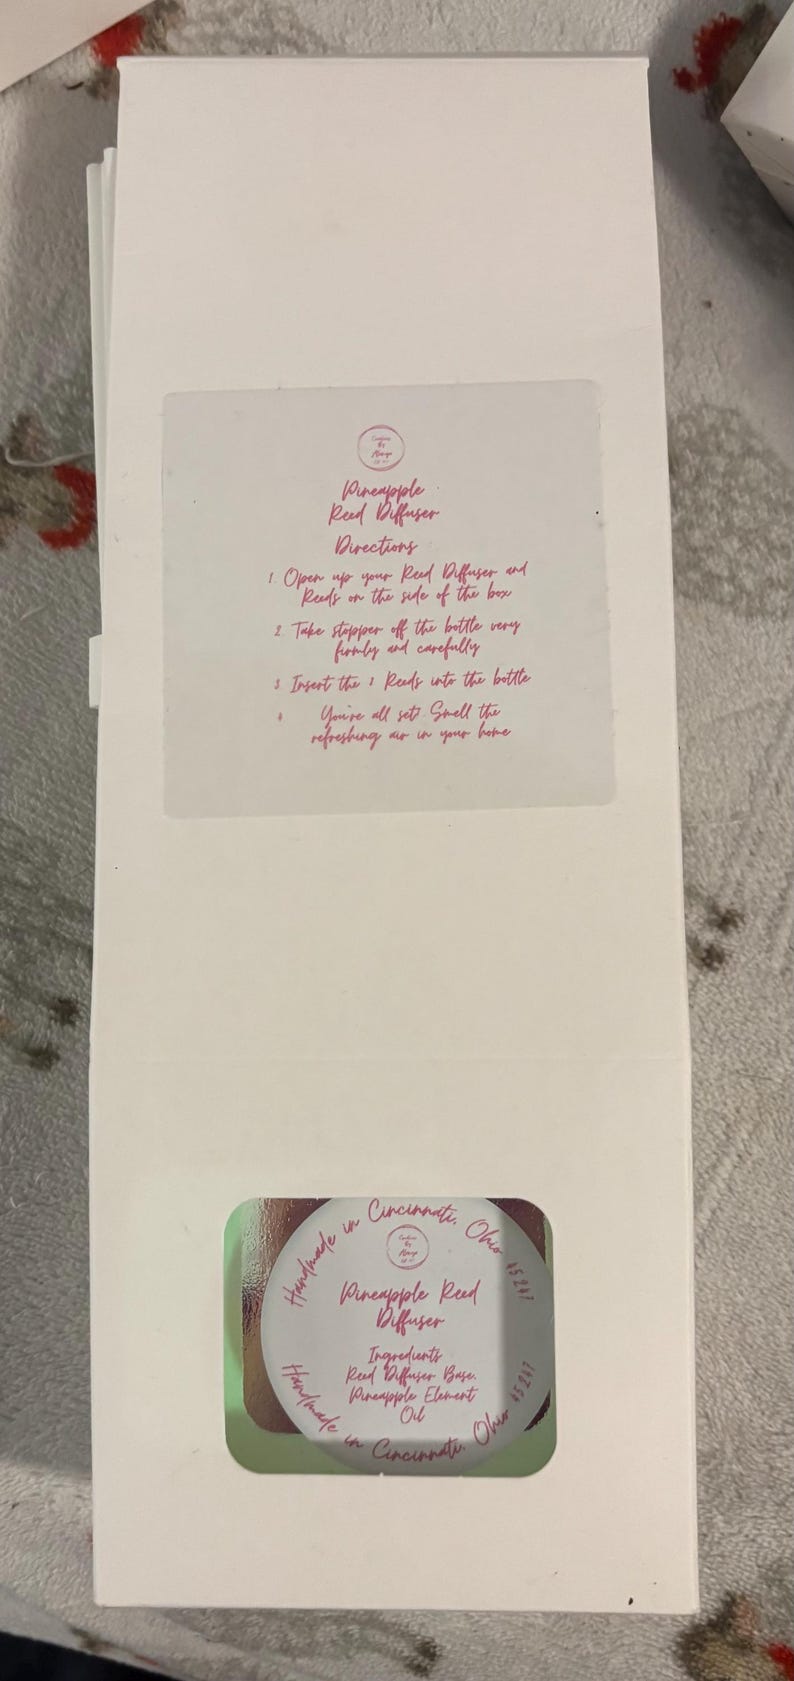 Pineapple
Reed Diffuser
Directions
1. Open up your Reed Diffuser and
Reeds on the side of the box
2. Take stopper off the bottle very
firmly and carefully
3 Insert the Reeds into the bottle
4 You're all set! Smell the
refreshing air in your home
Handmade in Cincinnati, Ohio 45247
Pineapple Reed
Diffuser
Ingredients
Reed Diffuser Base,
Pineapple Element
Oil
Handmade in Cincinnati, Ohio 45247